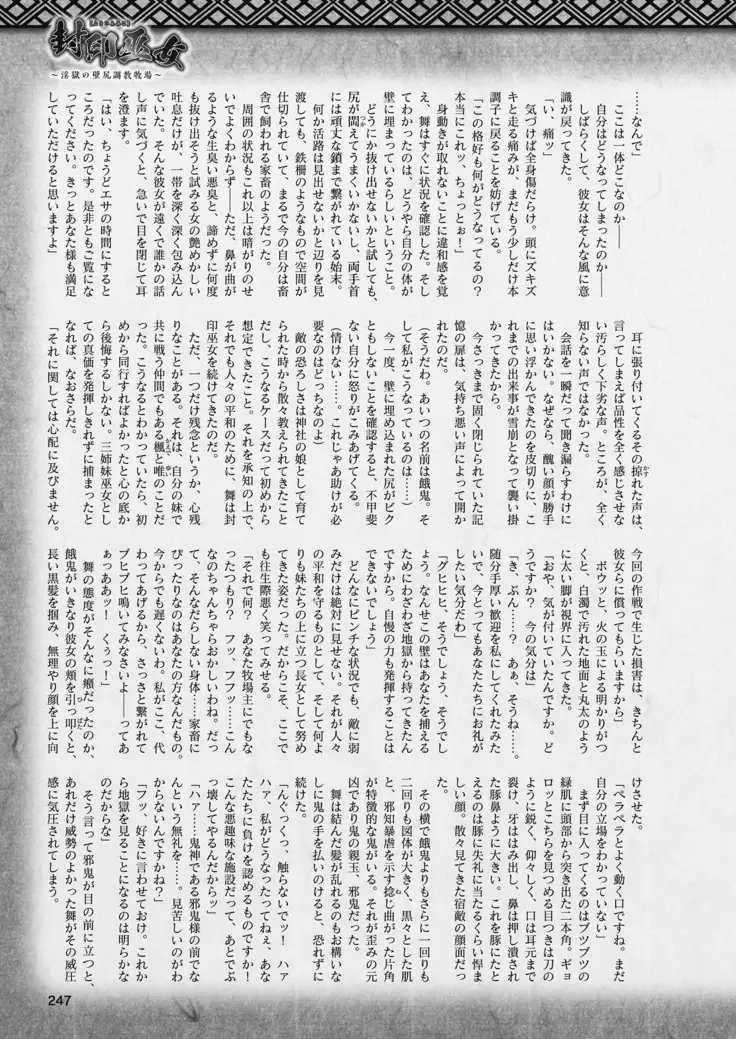 封印巫女
～淫獄の壁尻調教牧場～
……なんで」
　ここは一体どこなのか――
　自分はどうなってしまったのか――
　しばらくして、彼女はそんな風に意
識が戻ってきた。
「い、痛ッ」
　気づけば全身傷だらけ。頭にズキズ
キと走る痛みが、まだもう少しだけ本
調子に戻ることを妨げている。
「この格好も何がどうなってるの？
本当にこれッ、ちょっとぉ！」
　身動きが取れないことに違和感を覚
え、舞はすぐに状況を確認した。そし
てわかったのは、どうやら自分の体が
壁に埋まっているらしいということ。
　どうにか抜け出せないかと試しても、
尻が閊えてうまくいかないし、両手首
には頑丈な鎖まで繋がれている始末。
　何か活路は見出せないかと辺りを見
渡しても、鉄柵のようなもので空間が
仕切られていて、まるで今の自分は畜
舎で飼われる家畜のようだった。
　周囲の状況もこれ以上は暗がりのせ
いでよくわからず――ただ、鼻が曲が
るような生臭い悪臭と、諦めずに何度
も抜け出そうと試みる女の艶めかしい
吐息だけが、一帯を深く深く包み込ん
でいた。そんな彼女が遠くで誰かの話
し声に気づくと、急いで目を閉じて耳
を澄ます。
「はい、ちょうどエサの時間にすると
ころだったのです。是非ともご覧にな
ってください。きっとあなた様も満足
していただけると思いますよ」
　耳に張り付いてくるその掠れた声は、
言ってしまえば品性を全く感じさせな
い汚らしく下劣な声。ところが、全く
知らない声ではなかった。
　会話を一瞬だって聞き漏らすわけに
はいかない。なぜなら、醜い顔が勝手
に思い浮かんできたのを皮切りに、こ
れまでの出来事が雪崩となって襲い掛
かってきたから。
　今さっきまで固く閉じられていた記
憶の扉は、気持ち悪い声によって開か
れたのだ。
（そうだわ。あいつの名前は餓鬼。そ
して私がこうなっているのは……）
　今一度、壁に埋め込まれた尻がピク
ともしないことを確認すると、不甲斐
ない自分に怒りがこみあげてくる。
（情けない……。これじゃあ助けが必
要なのはどっちなのよ）
　敵の恐ろしさは神社の娘として育て
られた時から散々教えられてきたこと
だし、こうなるケースだって初めから
想定できたこと。それを承知の上で、
それでも人々の平和のために、舞は封
印巫女を続けてきたのだ。
　ただ、一つだけ残念というか、心残
りなことがある。それは、自分の妹で
共に戦う仲間でもある楓と唯のことだ
った。こうなるとわかっていたら、初
めから同行すればよかったと心の底か
ら後悔するしかない。三姉妹巫女とし
ての真価を発揮しきれずに捕まったと
なれば、なおさらだ。
「それに関しては心配に及びません。
今回の作戦で生じた損害は、きちんと
彼女らに償ってもらいますから」
　ボウッと、火の玉による明かりがつ
くと、白濁で汚れた地面と丸太のよう
に太い脚が視界に入ってきた。
「おや、気が付いていたんですか。ど
うですか？　今の気分は」
「き、ぶん……？　あぁ、そうね……。
随分手厚い歓迎を私にしてくれたみた
いで、今とってもあなたたちにお礼が
したい気分だわ」
「グヒヒヒ、そうでしょう、そうでし
ょう。なんせこの壁はあなたを捕える
ためにわざわざ地獄から持ってきたん
ですから。自慢の力も発揮することは
できないでしょう」
　どんなにピンチな状況でも、敵に弱
みだけは絶対に見せない。それが人々
の平和を守るものとして、そして何よ
りも妹たちの上に立つ長女として努め
てきた姿だった。だからこそ、ここで
も往生際悪く笑ってみせる。
「それで何？　あなた牧場主にでもな
ったつもり？　フッ、フフッ……こん
なのちゃんちゃらおかしいわね。だっ
て、そんなだらしない身体……家畜に
ぴったりなのはあなたの方なんだもの。
今からでも遅くないわ。私がここ、代
わってあげるから、さっさと繋がれて
ブヒブヒ鳴いてみなさいよ――ってあ
ぁっああッ！　くぅっ！」
　舞の態度がそんなに癪だったのか、
餓鬼がいきなり彼女の頬を引っ叩くと、
長い黒髪を掴み、無理やり顔を上に向
けさせた。
「ペラペラとよく動く口ですね。まだ
自分の立場をわかっていない」
　まず目に入ってくるのはブツブツの
緑肌に頭部から突き出た二本角。ギョ
ロッとこちらを見つめる目つきは刀の
ように鋭く、仰々しく、口は耳元まで
裂け、牙ははみ出し、鼻は押し潰され
た豚鼻ように大きい。これを豚にたと
えるのは豚に失礼に当たるくらい悍ま
しい顔。散々見てきた宿敵の顔面だっ
た。
　その横で餓鬼よりもさらに一回りも
二回りも図体が大きく、黒々とした肌
と、邪知暴虐を示す捻じ曲がった片角
が特徴的な鬼がいる。それが歪みの元
凶であり鬼の親玉、邪鬼だった。
　舞は結んだ髪が乱れるのもお構いな
しに鬼の手を払いのけると、恐れずに
続けた。
「んぐっくっ、触らないでッ！　ハァ
ハァ、私がどうなったってねぇ、あな
たたちに負けを認めるものですか！
こんな悪趣味な施設だって、あとでぶ
っ壊してやるんだからッ」
「ハァ……鬼神である邪鬼様の前でな
んという無礼を……。見苦しいのがわ
からないんですかね？」
「フッ、好きに言わせておけ。これか
ら地獄を見ることになるのは明らかな
のだからな」
　そう言って邪鬼が目の前に立つと、
あれだけ威勢のよかった舞がその威圧
感に気圧されてしまう。
247